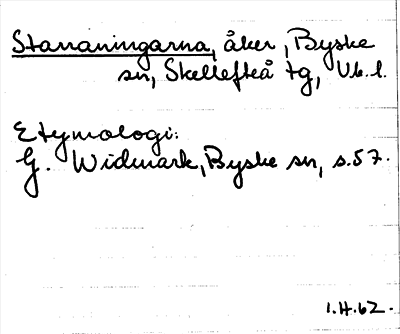 Starraningarna, åker, Byske
sn, Skellefteå tg, Vb. l.
Etymologi:
G. Widmark, Byske sn, s. 57.
1.H.62.